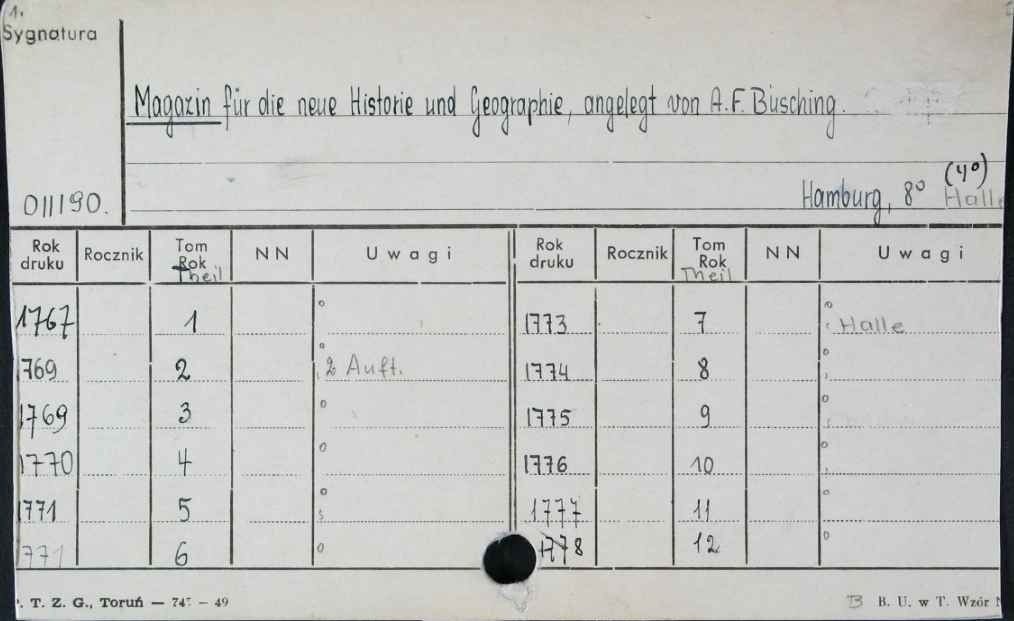 1.
Sygnatura
Magazin für die neue Historie und Geographie, angelegt von A.F. Büsching.
011190.
Hamburg, 8° (4°) Halle
Rok druku Rocznik Tom Rok Theil NN Uwagi Rok druku Rocznik Tom Rok Theil NN Uwagi
1767 1 ° 1773 7 ° Halle
769 2 ° 2 Aufl. 1774 8 °
1769 3 ° 1775 9 °
1770 4 ° 1776 10 °
1771 5 ° 1777 11 °
771 6 ° 1778 12 °
. T. Z. G., Toruń — 74 — 49
B B. U. w T. Wzór